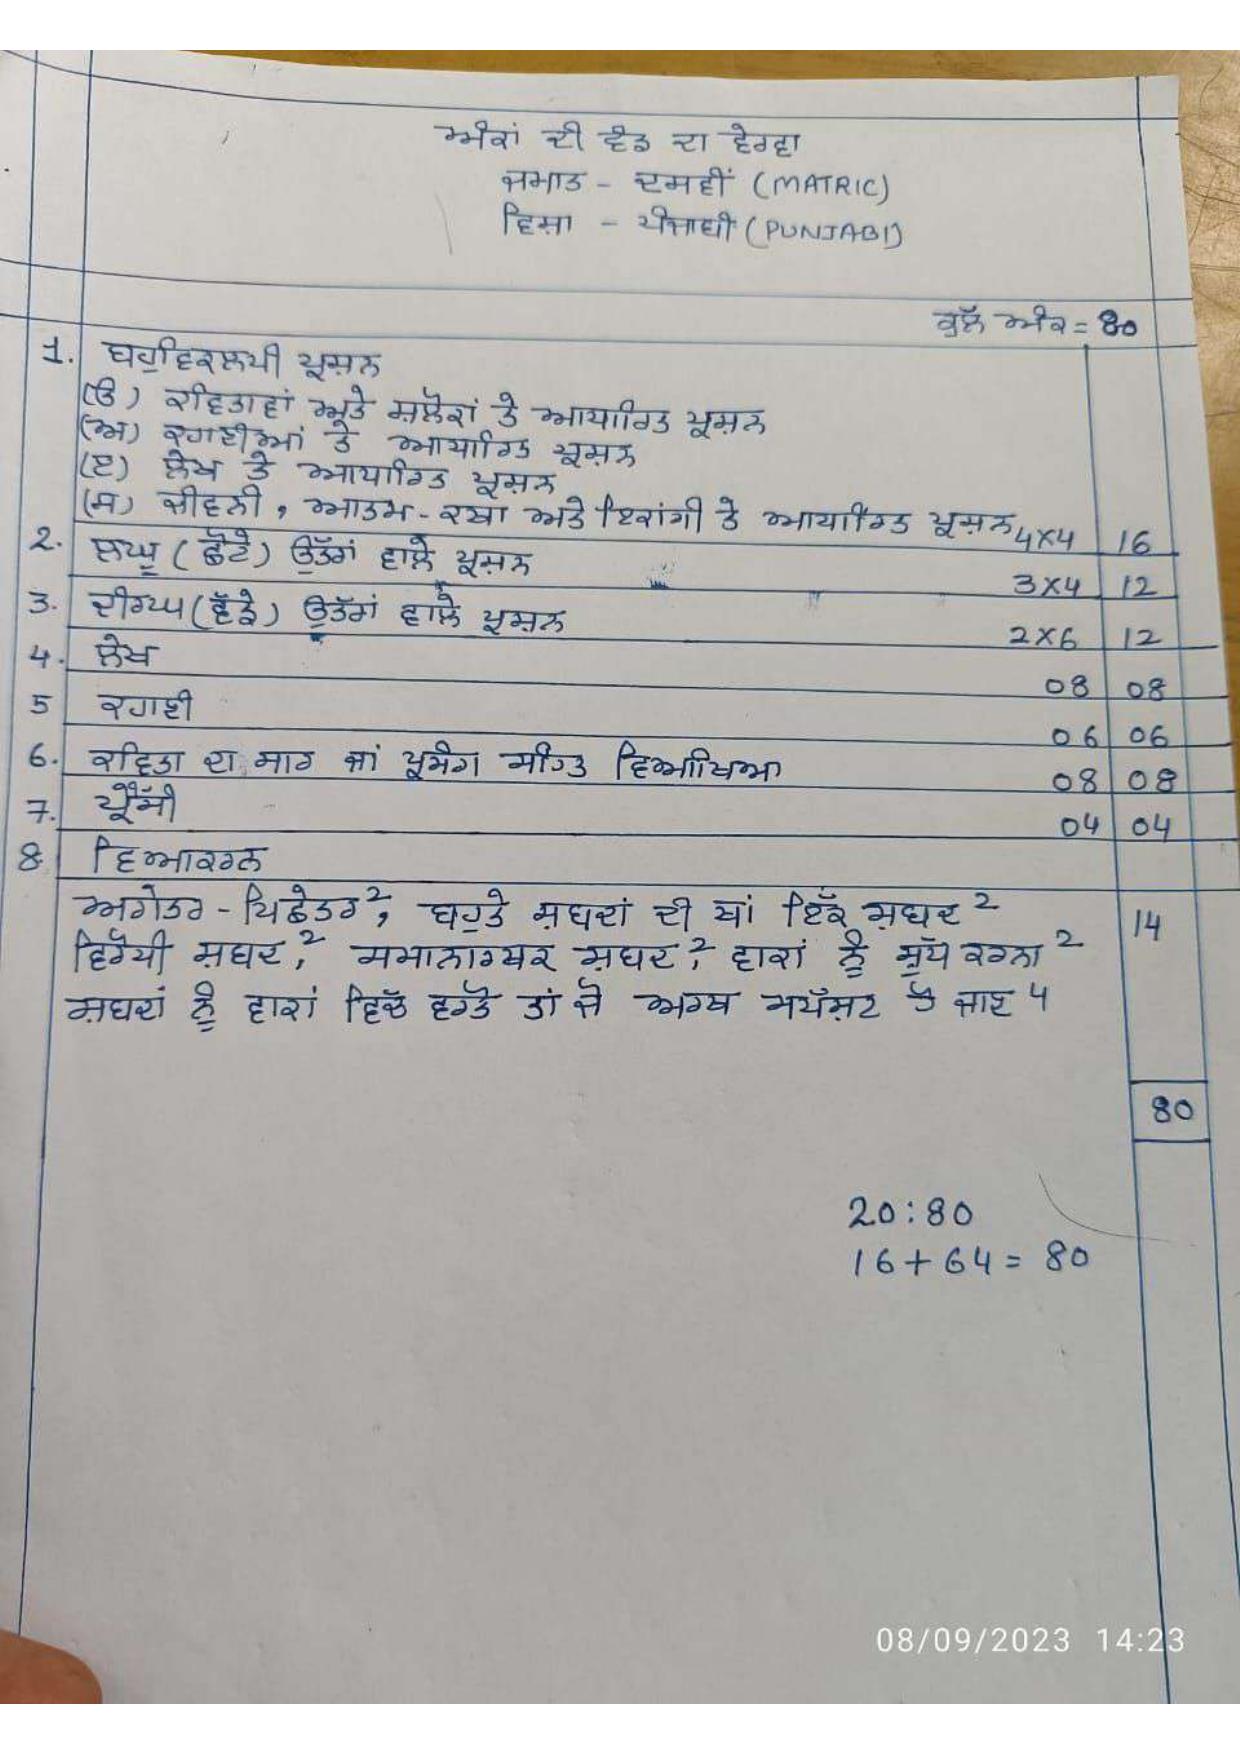 ਅੰਕਾਂ ਦੀ ਵੰਡ ਦਾ ਵੇਰਵਾ
ਜਮਾਤ - ਦਸਵੀਂ (MATRIC)
ਵਿਸ਼ਾ - ਪੰਜਾਬੀ (PUNJABI)
ਕੁੱਲ ਅੰਕ = 80
1. ਬਹੁਵਿਕਲਪੀ ਪ੍ਰਸ਼ਨ
(ੳ) ਕਵਿਤਾਵਾਂ ਅਤੇ ਸ਼ਲੋਕਾਂ ਤੇ ਆਧਾਰਿਤ ਪ੍ਰਸ਼ਨ
(ਅ) ਕਹਾਣੀਆਂ ਤੇ ਆਧਾਰਿਤ ਪ੍ਰਸ਼ਨ
(ੲ) ਲੇਖ ਤੇ ਆਧਾਰਿਤ ਪ੍ਰਸ਼ਨ
(ਸ) ਜੀਵਨੀ, ਆਤਮ-ਕਥਾ ਅਤੇ ਇਕਾਂਗੀ ਤੇ ਆਧਾਰਿਤ ਪ੍ਰਸ਼ਨ 4x4 16
2. ਲਘੂ (ਛੋਟੇ) ਉੱਤਰਾਂ ਵਾਲੇ ਪ੍ਰਸ਼ਨ 3x4 12
3. ਦੀਰਘ (ਵੱਡੇ) ਉੱਤਰਾਂ ਵਾਲੇ ਪ੍ਰਸ਼ਨ 2x6 12
4. ਲੇਖ 08 08
5 ਕਹਾਣੀ 06 06
6. ਕਵਿਤਾ ਦਾ ਸਾਰ ਜਾਂ ਪ੍ਰਸੰਗ ਸਹਿਤ ਵਿਆਖਿਆ 08 08
7. 04 04
8. ਵਿਆਕਰਨ
ਅਗੇਤਰ - ਪਿਛੇਤਰ 2, ਬਹੁਤੇ ਸ਼ਬਦਾਂ ਦੀ ਥਾਂ ਇੱਕ ਸ਼ਬਦ 2 14
ਵਿਰੋਧੀ ਸ਼ਬਦ, 2 ਸਮਾਨਾਰਥਕ ਸ਼ਬਦ, 2 ਵਾਕਾਂ ਨੂੰ ਸ਼ੁੱਧ ਕਰਨਾ 2
ਸ਼ਬਦਾਂ ਨੂੰ ਵਾਕਾਂ ਵਿੱਚ ਵਰਤੋ ਤਾਂ ਜੋ ਅਰਥ ਸਪੱਸ਼ਟ ਹੋ ਜਾਣ 4
80
20:80
16 + 64 = 80
08/09/2023 14:23